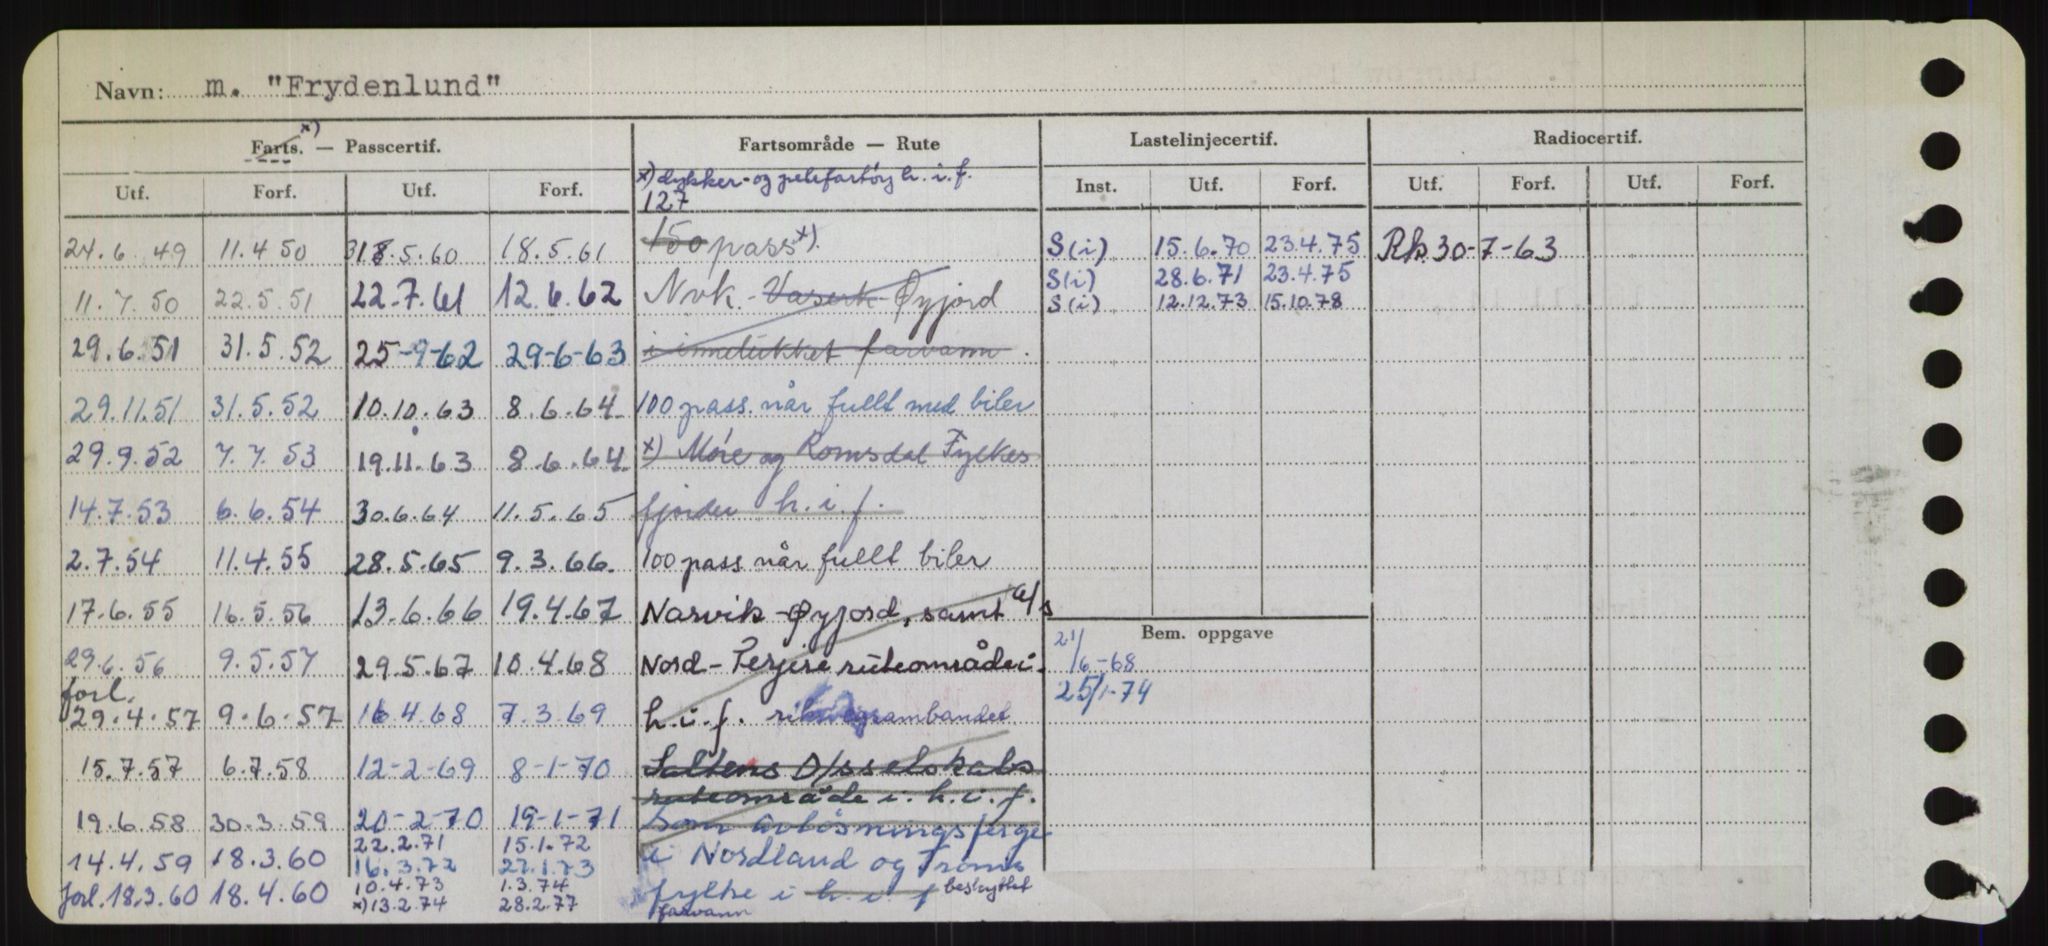 Navn: m. "Frydenlund"
x)
Farts. — Passcertif. Fartsområde — Rute Lastelinjecertif. Radiocertif.
Utf. Forf. Utf. Forf. x) dykker- og h. i. f. Inst. Utf. Forf. Utf. Forf. Utf. Forf.
127
24.6.49 11.4.50 18.5.60 18.5.61 150 pass x). S(i) 15.6.70 23.4.75 Rk 30-7-63
S(i) 28.6.71 23.4.75
11.7.50 22.5.51 22.7.61 12.6.62 Nvk.- Øyjord S(i) 12.12.73 15.10.78
29.6.51 31.5.52 25-9-62 29-6-63 i innelukket farvann.
29.11.51 31.5.52 10.10.63 8.6.64 100 pass. når fullt med biler
29.9.52 7.7.53 19.11.63 8.6.64 x) Møre og Romsdal Fylkes
14.7.53 6.6.54 30.6.64 11.5.65 fjorder h.i.f.
2.7.54 11.4.55 28.5.65 9.3.66. 100 pass når fullt biler
17.6.55 16.5.56 13.6.66 19.4.67 Narvik-Øyjord, samt a/s
Bem. oppgave
29.6.56 9.5.57 29.5.67 10.4.68 Nord-Ferjers ruteområde i. 21/6-68
forl. 25/1-74
29.4.57 9.6.57 16.4.68 7.3.69 h.i.f.
15.7.57 6.7.58 12-2-69 8-1-70 Saltens D/sselskabs
ruteområde i. h.i.f.
19.6.58 30.3.59 20-2-70 19-1-71 Som avløsningsferge
22.2.71 15.1.72
14.4.59 18.3.60 16.3.72 27.1.73 i Nordland og Troms
10.4.73 1.3.74
forl. 18.3.60 18.4.60 x) 13.2.74 28.2.77 fylke i h.i.f beskyttet
farvann